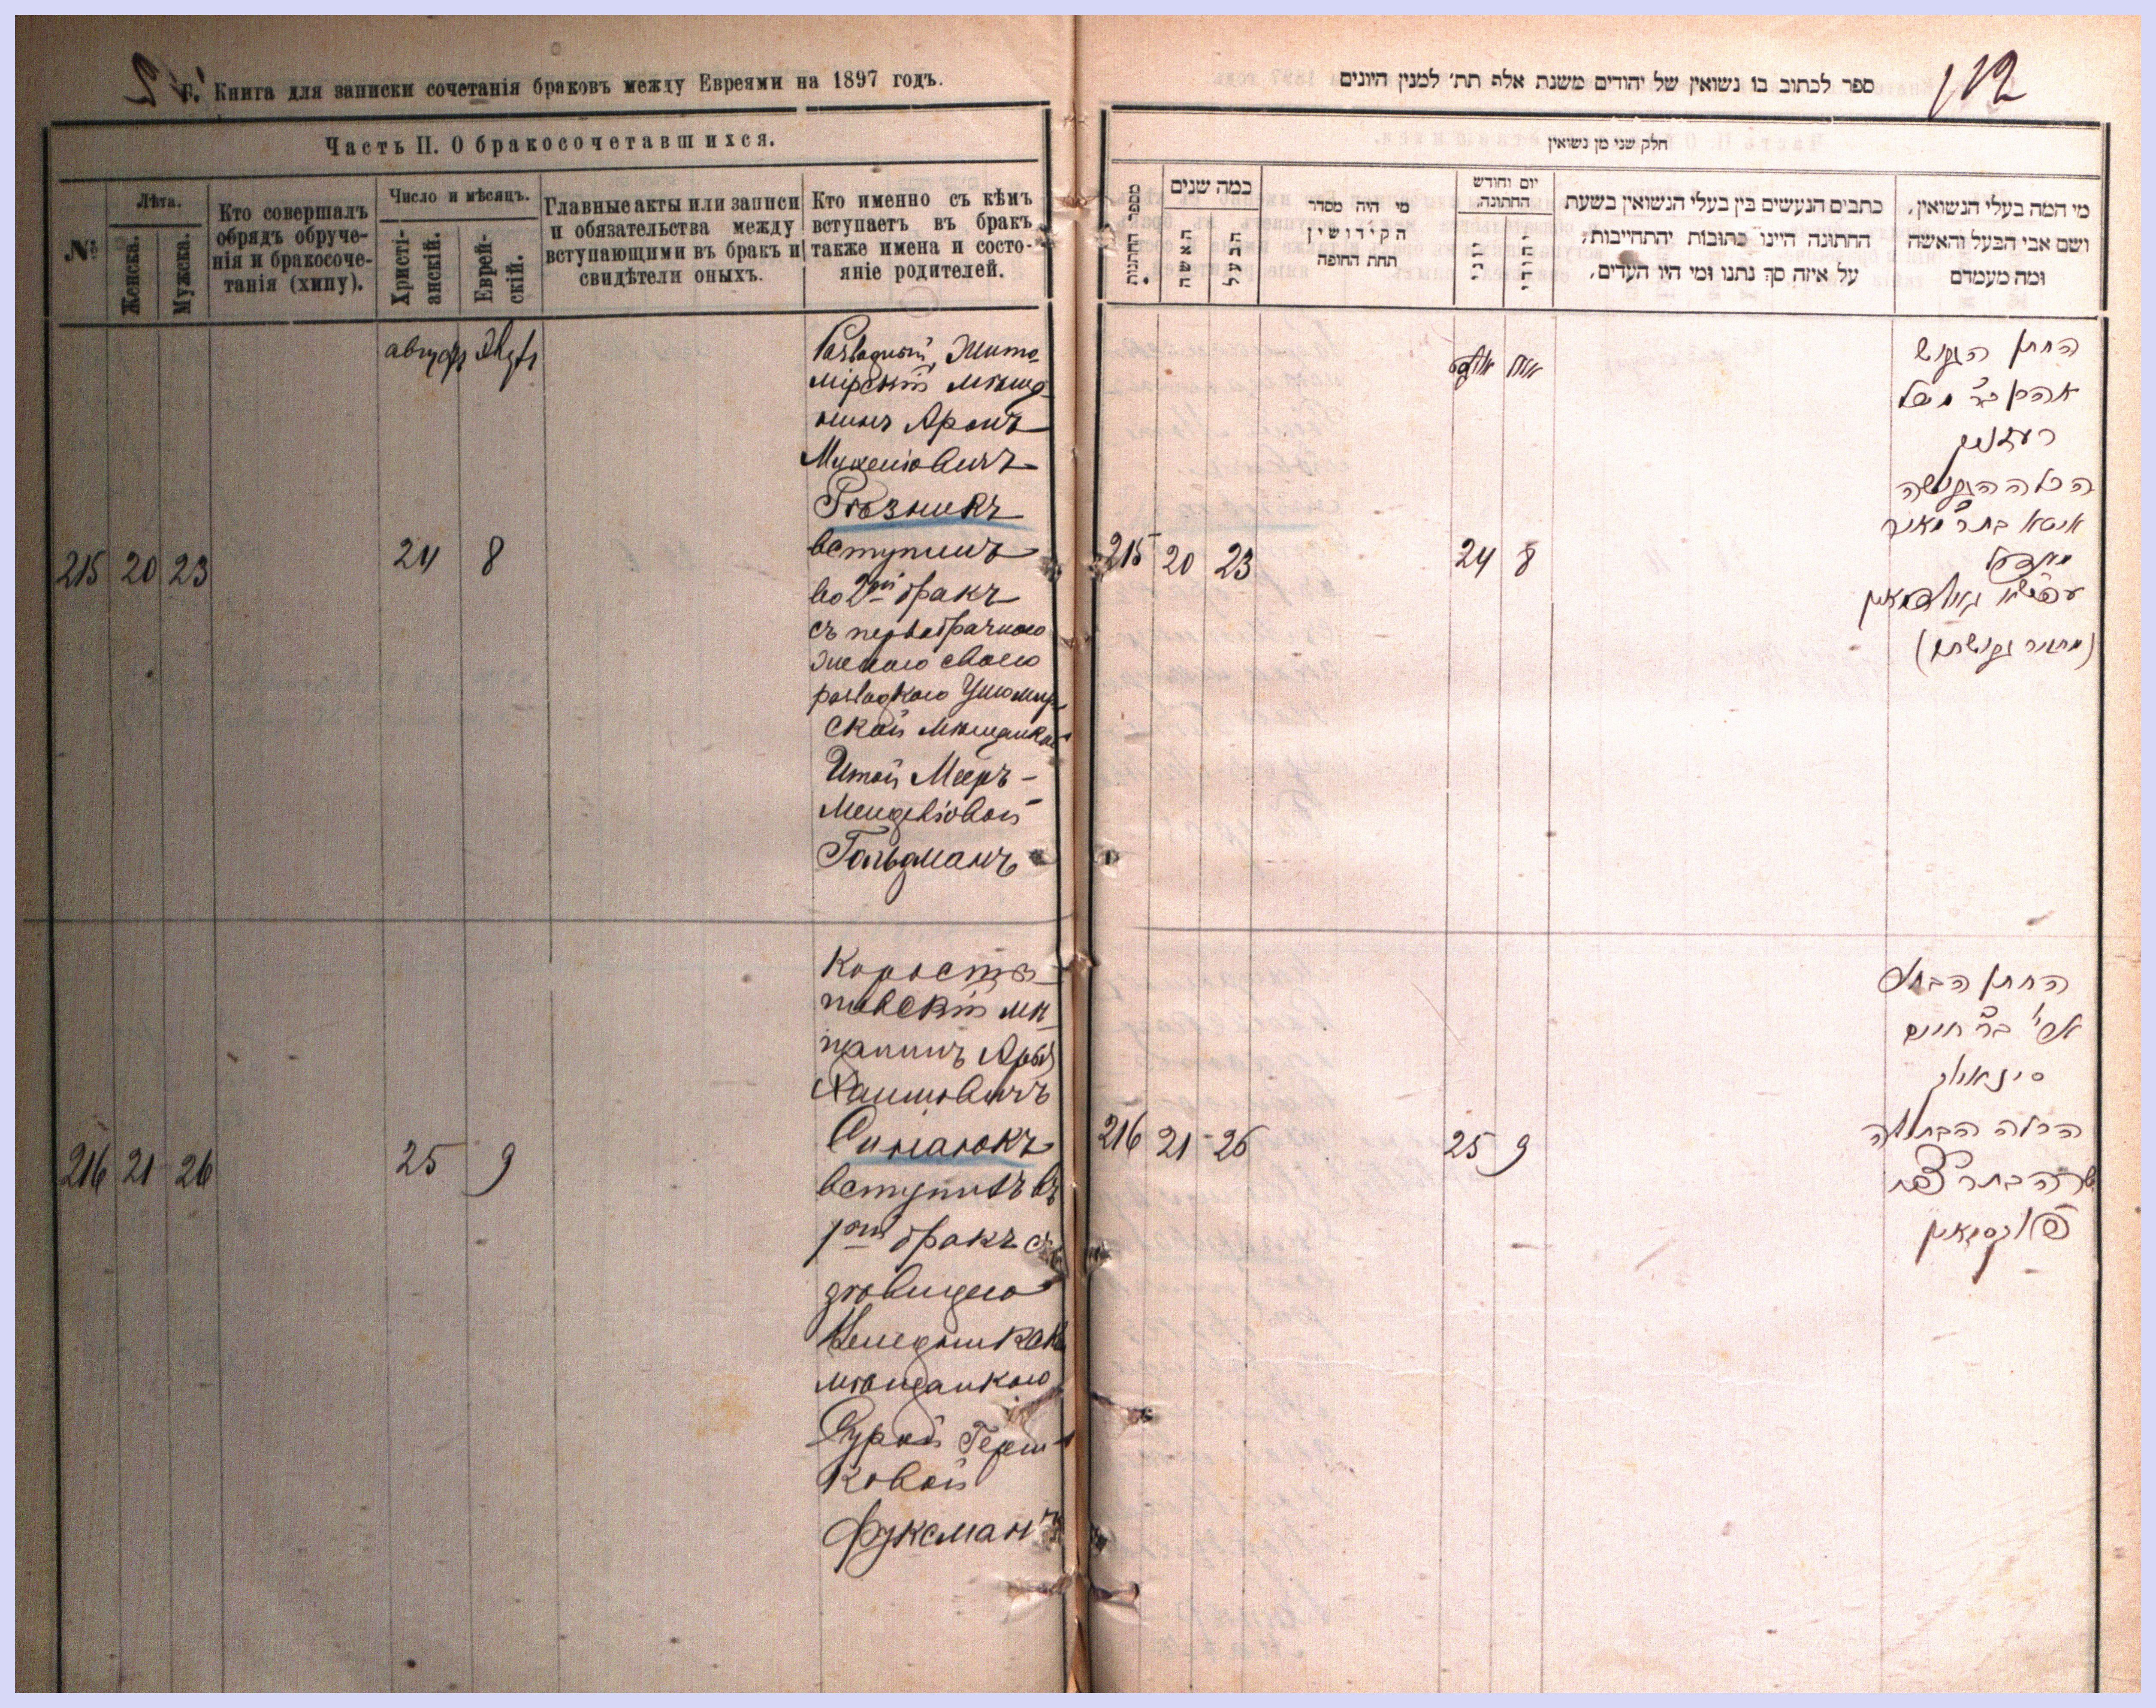 Г. Книга для записки сочетанія браковъ между Евреями на 1897 годъ.
Часть II. О бракосочетавшихся.
№
Лѣта.
Женска.
Мужска.
Кто совершалъ
обрядъ обруче-
нія и бракосоче-
танія (хипу).
Число и мѣсяцъ.
Христі-
анскій.
Еврей-
скій.
Главные акты или записи
и обязательства между
вступающими въ бракъ и
свидѣтели оныхъ.
Кто именно съ кѣмъ
вступаетъ въ бракъ
также имена и состо-
яніе родителей.
215 20 23 24 8
Мѣща
Аронъ
Рѣзникъ
вступилъ
во 2й бракъ
съ первобрачною
женою своею
Ушомир
ской мѣщанкой
Итой Мееръ-
Гольдманъ
216 21 26 25 9
Коросты
шевскій мѣ
щанинъ
Хаимовичъ
Синаюкъ
вступилъ въ
1ый бракъ съ
дѣвицею
мѣщанкою
Сурой Герш
ковой
Фуксманъ
ספר לכתוב בו נשואין של יהודים משנת אלף תת׳ למנין היונים
112
חלק שני מן נשואין
מספר החתנות
כמה שנים
האשה
הבעל
מי היה מסדר
הקידושין
תחת החופה
יום וחודש
החתונה,
יוני
יהודי
כתבים הנעשים בין בעלי הנשואין בשעת
החתונה היינו כתובות יהתחייבות,
על איזה סך נתנו ומי היו העדים,
מי המה בעלי הנשואין,
ושם אבי הבעל והאשה
ומה מעמדם
215 20 23 24 8
החתן הגרוש
רעזניק
הכלה הגרושה
איטא בת ר׳ מאיר
(מחזיר גרושתו)
216 21 26 25 9
החתן הבחור
בר׳ חיים
סינאיוק
הכלה הבתולה
שרה בת ר׳
פוקסמאן